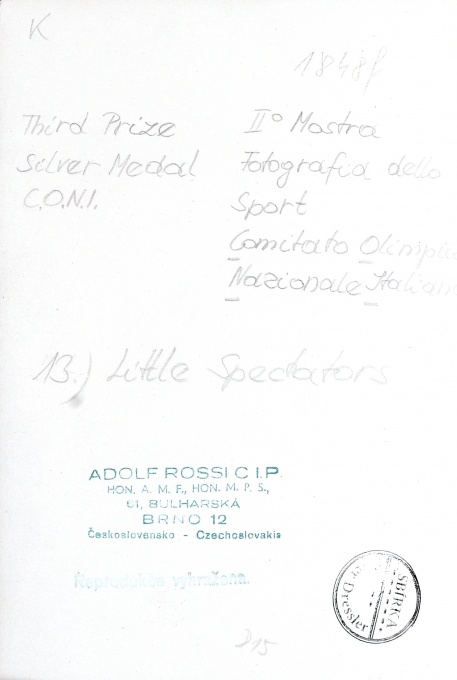 K
1848f
Third Prize
Silver Medal
C.O.N.I.
II° Mostra
Fotografia dello
Sport
Comitato Olimpic
Nazionale Italian
13.) Little Spectators
ADOLF ROSSI C I.P.
HON. A. M. F., HON. M. P. S.,
61, BULHARSKÁ
BRNO 12
Československo - Czechoslovakia
Reprodukce vyhražena.
SBÍRKA
Dressler